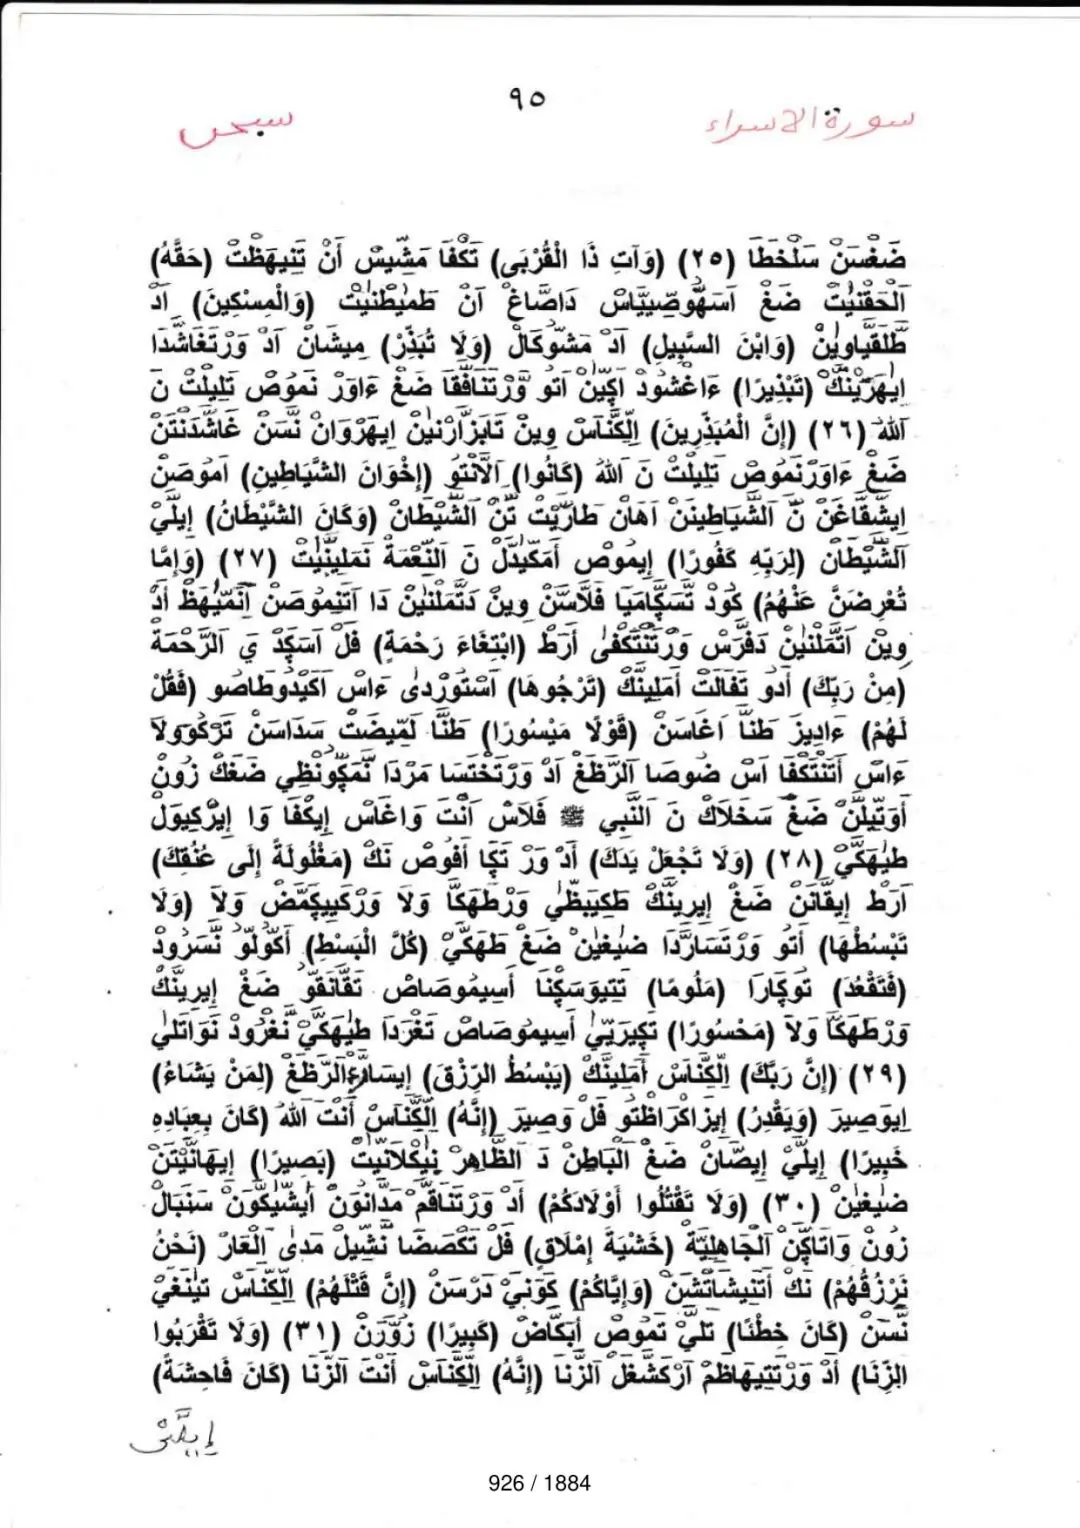 ٩٥
سورة الاسراء
سبحن
ضَغْسَنْ سَلْخَطَا (٢٥) (وَآتِ ذَا الْقُرْبَى) تَكْفَا مَشِّيسْ أَنْ تَنِيهَظْتْ (حَقَّهُ)
اَلْحَقْنِيْتْ ضَغْ اَسَهُوصِييَّاسْ دَاصَّاغْ اَنْ طَمَيْطِنَيْتْ (وَالْمِسْكِينَ) اَدْ
طَّلَقِيَّاوِينْ (وَابْنَ السَّبِيلِ) اَدْ مَسُّوكَالْ (وَلَا تُبَذِّرْ) مِيشَانْ اَدْ وَرْتَغَاشَّدَا
اِيهَرَيْنَكْ (تَبْذِيرًا) ءَاغْشُودْ اَكِيَّنْ اَتو وَّرْتَنَافَّقَا ضَغْ ءَاوَرْ نَمُوصْ تَلِيلْتْ نَ
اَللهْ (٢٦) (إِنَّ الْمُبَذِّرِينَ) اِلَّكْنَآسْ وِينْ تَابَزَّارْنِينْ اِيهَرْوَانْ نَسَنْ غَاشَّدَنْتَنْ
ضَغْ ءَاوَرْنَمُوصْ تَلِيلْتْ نَ اَللهْ (كَانُوا) اَلَانْتُو (إِخْوَانَ الشَّيَاطِينِ) اَمُوصَنْ
اِيشَقَّاغَنْ نَ اَلشَّيَاطِينَنْ اَهَانْ طَارَّيْتْ تَنْ اَلشَّيْطَانْ (وَكَانَ الشَّيْطَانُ) اِيلَيْ
اَلشَّيْطَانْ (لِرَبِّهِ كَفُورًا) اِيمُوصْ أَمَكِيدَلْ نَ اَلنِّعْمَةْ نَمَلِينِيْتْ (٢٧) (وَإِمَّا
تُعْرِضَنَّ عَنْهُمُ) كُودْ تَسَكَّامَيَا فَلَاسَنْ وِينْ دَتَمَلْنَيْنْ دَا اَتَنِمُوصَنْ اِنَمَيْهَظْ اَدْ
وِينْ اَتَمَلْنَيْنْ دَفَّرْسْ وَرْتَنْتَكْفَىْ أَرَطْ (ابْتِغَاءَ رَحْمَةٍ) فَلْ اَسَكَدْ يَ اَلرَّحْمَةْ
(مِنْ رَبِّكَ) أَدُو تَفَالَتْ أَمَلِينَكْ (تَرْجُوهَا) اَسْتُورْدَىْ ءَاسْ اَكِيدُوطَاصُو (فَقُلْ
لَهُمْ) ءَادِيزْ طَنَّا اَغَاسَنْ (قَوْلًا مَيْسُورًا) طَنَّا لَمِّيضَتْ سَدَاسَنْ تَرْكُووَلَا
ءَاسْ أَتَنْتَكْفَا اَسْ ضُوصَا اَلرَّظَغْ اَدْ وَرْتَخْتَسَا مَرْدَا نَمَكُونْظِي ضَغَكْ زُونْ
أَوَتِيلَنْ ضَغْ سَخَلَاكْ نَ اَلنَّبِي ﷺ فَلَاسْ اَنْتَ وَاغَاسْ اِيكْفَا وَا اِيرْكِيوَلْ
طَيْهَكَيْ (٢٨) (وَلَا تَجْعَلْ يَدَكَ) اَدْ وَرْ تَكَا أَفُوصْ نَكْ (مَغْلُولَةً إِلَى عُنُقِكَ)
اَرَطْ اِيقَّانَنْ ضَغْ اِيرِينَكْ طَكِيبَظَىْ وَرْطَهَكَا وَلَا وَرْكِيِيكْمَضْ وَلَا (وَلَا
تَبْسُطْهَا) أَتو وَرْتَسَارَّدَا ضَيْغَيْنْ ضَغْ طَهَكَيْ (كُلَّ الْبَسْطِ) أَكُولُو نَسَرُودْ
(فَتَقْعُدَ) تَوَكَّارَا (مَلُومًا) تَتِيوَسَكْنَا أَسِيمُوصَاصْ تَقَانَقُو ضَغْ اِيرِينَكْ
وَرْطَهَكَا وَلَا (مَحْسُورًا) تَكِيرَيِّيْ أَسِيمُوصَاصْ تَغْرَدَا طَيْهَكَيْ نَغْرُودْ نَوَاتَلَىْ
(٢٩) (إِنَّ رَبَّكَ) اِلَّكْنَآسْ أَمَلِينَكْ (يَبْسُطُ الرِّزْقَ) اِيسَارَّوْ اَلرَّظَغْ (لِمَنْ يَشَاءُ)
اِيوَصِيرَ (وَيَقْدِرُ) اِيزَاكْرَاظْتُو فَلْ وَصِيرَ (إِنَّهُ) اِلَّكْنَآسْ أَنْتَ اَللهْ (كَانَ بِعِبَادِهِ
خَبِيرًا) اِيلَيْ اِيصَّانْ ضَغْ اَلْبَاطِنْ دَ اَلظَّاهِرْ نَيْكَلَانِيْتْ (بَصِيرًا) اِيهَانَيْتَنْ
ضَيْغَيْنْ (٣٠) (وَلَا تَقْتُلُوا أَوْلَادَكُمْ) اَدْ وَرْتَنَاقَّمْ مَدَّانَوَنْ أَيْشِيكُوَنْ سَنَبَالْ
زُونْ وَاتَاكَّنْ اَلْجَاهِلِيَّةْ (خَشْيَةَ إِمْلَاقٍ) فَلْ تَكْصَضَا نَشِّيلْ مَدَىْ اَلْعَارْ (نَحْنُ
نَرْزُقُهُمْ) نَكْ أَتَنِيشَاتَّشَنْ (وَإِيَّاكُمْ) كَوَنَيْ دَرْسَنْ (إِنَّ قَتْلَهُمْ) اِلَّكْنَآسْ تَيْنَغَيْ
نَسَنْ (كَانَ خِطْئًا) تَلَيْ تَمُوصْ أَبَكَّاضْ (كَبِيرًا) زَوَّرَنْ (٣١) (وَلَا تَقْرَبُوا
الزِّنَا) اَدْ وَرْتَتِيهَاظَمْ اَرْكَشْغَلْ اَلزِّنَا (إِنَّهُ) اِلَّكْنَآسْ أَنْتَ اَلزِّنَا (كَانَ فَاحِشَةً)
اِيلَيْ
926 / 1884